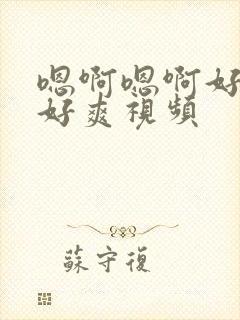 嗯啊嗯啊好
好爽視頻
蘇守復